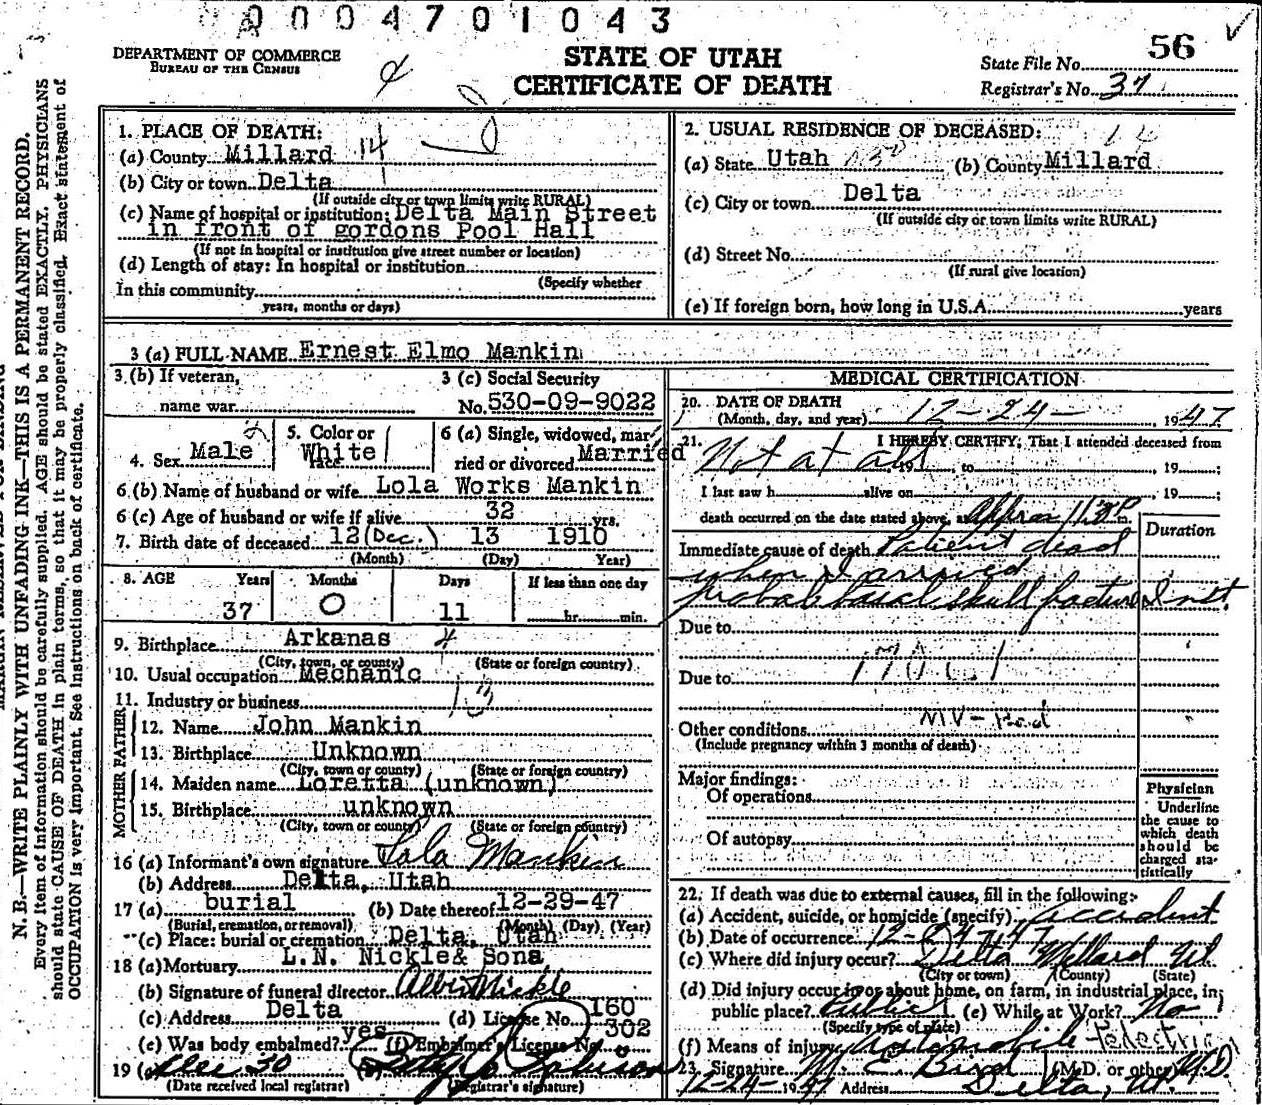 0004701043
DEPARTMENT OF COMMERCE
BUREAU OF THE CENSUS
STATE OF UTAH
CERTIFICATE OF DEATH
State File No. 56
Registrar's No. 37
N. B.—WRITE PLAINLY WITH UNFADING INK—THIS IS A PERMANENT RECORD.
Every item of information should be carefully supplied. AGE should be stated EXACTLY. PHYSICIANS
should state CAUSE OF DEATH in plain terms, so that it may be properly classified. Exact statement of
OCCUPATION is very important. See instructions on back of certificate.
1. PLACE OF DEATH:
(a) County Millard 14
(b) City or town Delta
(If outside city or town limits write RURAL)
(c) Name of hospital or institution: Delta Main Street
in front of gordons Pool Hall
(If not in hospital or institution give street number or location)
(d) Length of stay: In hospital or institution
(Specify whether
In this community
years, months or days)
2. USUAL RESIDENCE OF DECEASED:
(a) State Utah (b) County Millard
(c) City or town Delta
(If outside city or town limits write RURAL)
(d) Street No.
(If rural give location)
(e) If foreign born, how long in U.S.A. years
3 (a) FULL NAME Ernest Elmo Mankin
3 (b) If veteran,
name war
3 (c) Social Security
No. 530-09-9022
4. Sex Male
5. Color or
race White
6 (a) Single, widowed, mar-
ried or divorced Married
6 (b) Name of husband or wife Lola Works Mankin
6 (c) Age of husband or wife if alive 32 yrs.
7. Birth date of deceased 12(Dec.) 13 1910
(Month) (Day) Year)
8. AGE Years Months Days If less than one day
37 0 11 hr. min.
9. Birthplace Arkanas
(City, town, or county) (State or foreign country)
10. Usual occupation Mechanic
11. Industry or business
FATHER
12. Name John Mankin
13. Birthplace Unknown
(City, town or county) (State or foreign country)
MOTHER
14. Maiden name Loretta (unknown)
15. Birthplace unknown
(City, town or county) (State or foreign country)
16 (a) Informant's own signature Lola Mankin
(b) Address Delta, Utah
17 (a) burial (b) Date thereof 12-29-47
(Burial, cremation, or removal) (Month) (Day) (Year)
(c) Place: burial or cremation Delta, Utah
18 (a) Mortuary L.N. Nickle& Sons
(b) Signature of funeral director Nickle
(c) Address Delta (d) License No. 160
(e) Was body embalmed? yes (f) Embalmer's License No. 302
19 (a) Dec 30
(Date received local registrar) (Registrar's signature)
MEDICAL CERTIFICATION
20. DATE OF DEATH
(Month, day, and year) 12-24- 1947
21. I HEREBY CERTIFY, That I attended deceased from
Not at all, 19 , to , 19 ;
I last saw h alive on , 19 ;
death occurred on the date stated above, at Approx 11:30 P m.
Duration
Immediate cause of death Patient dead
when I arrived
probab basal skull facture Inst.
Due to
Due to
MV-Ped
Other conditions
(Include pregnancy within 3 months of death)
Major findings:
Of operations
Of autopsy
Physician
Underline
the cause to
which death
should be
charged sta-
tistically
22. If death was due to external causes, fill in the following:
(a) Accident, suicide, or homicide (specify) accident
(b) Date of occurrence 12-24-47
(c) Where did injury occur? Delta Millard Ut
(City or town) (County) (State)
(d) Did injury occur in or about home, on farm, in industrial place, in
public place? Public (e) While at Work? No
(Specify type of place)
(f) Means of injury Automobile - Pedestrian
23. Signature M. E. Bird (M.D. or other) M.D.
12-24-1947 Address Delta, Ut.